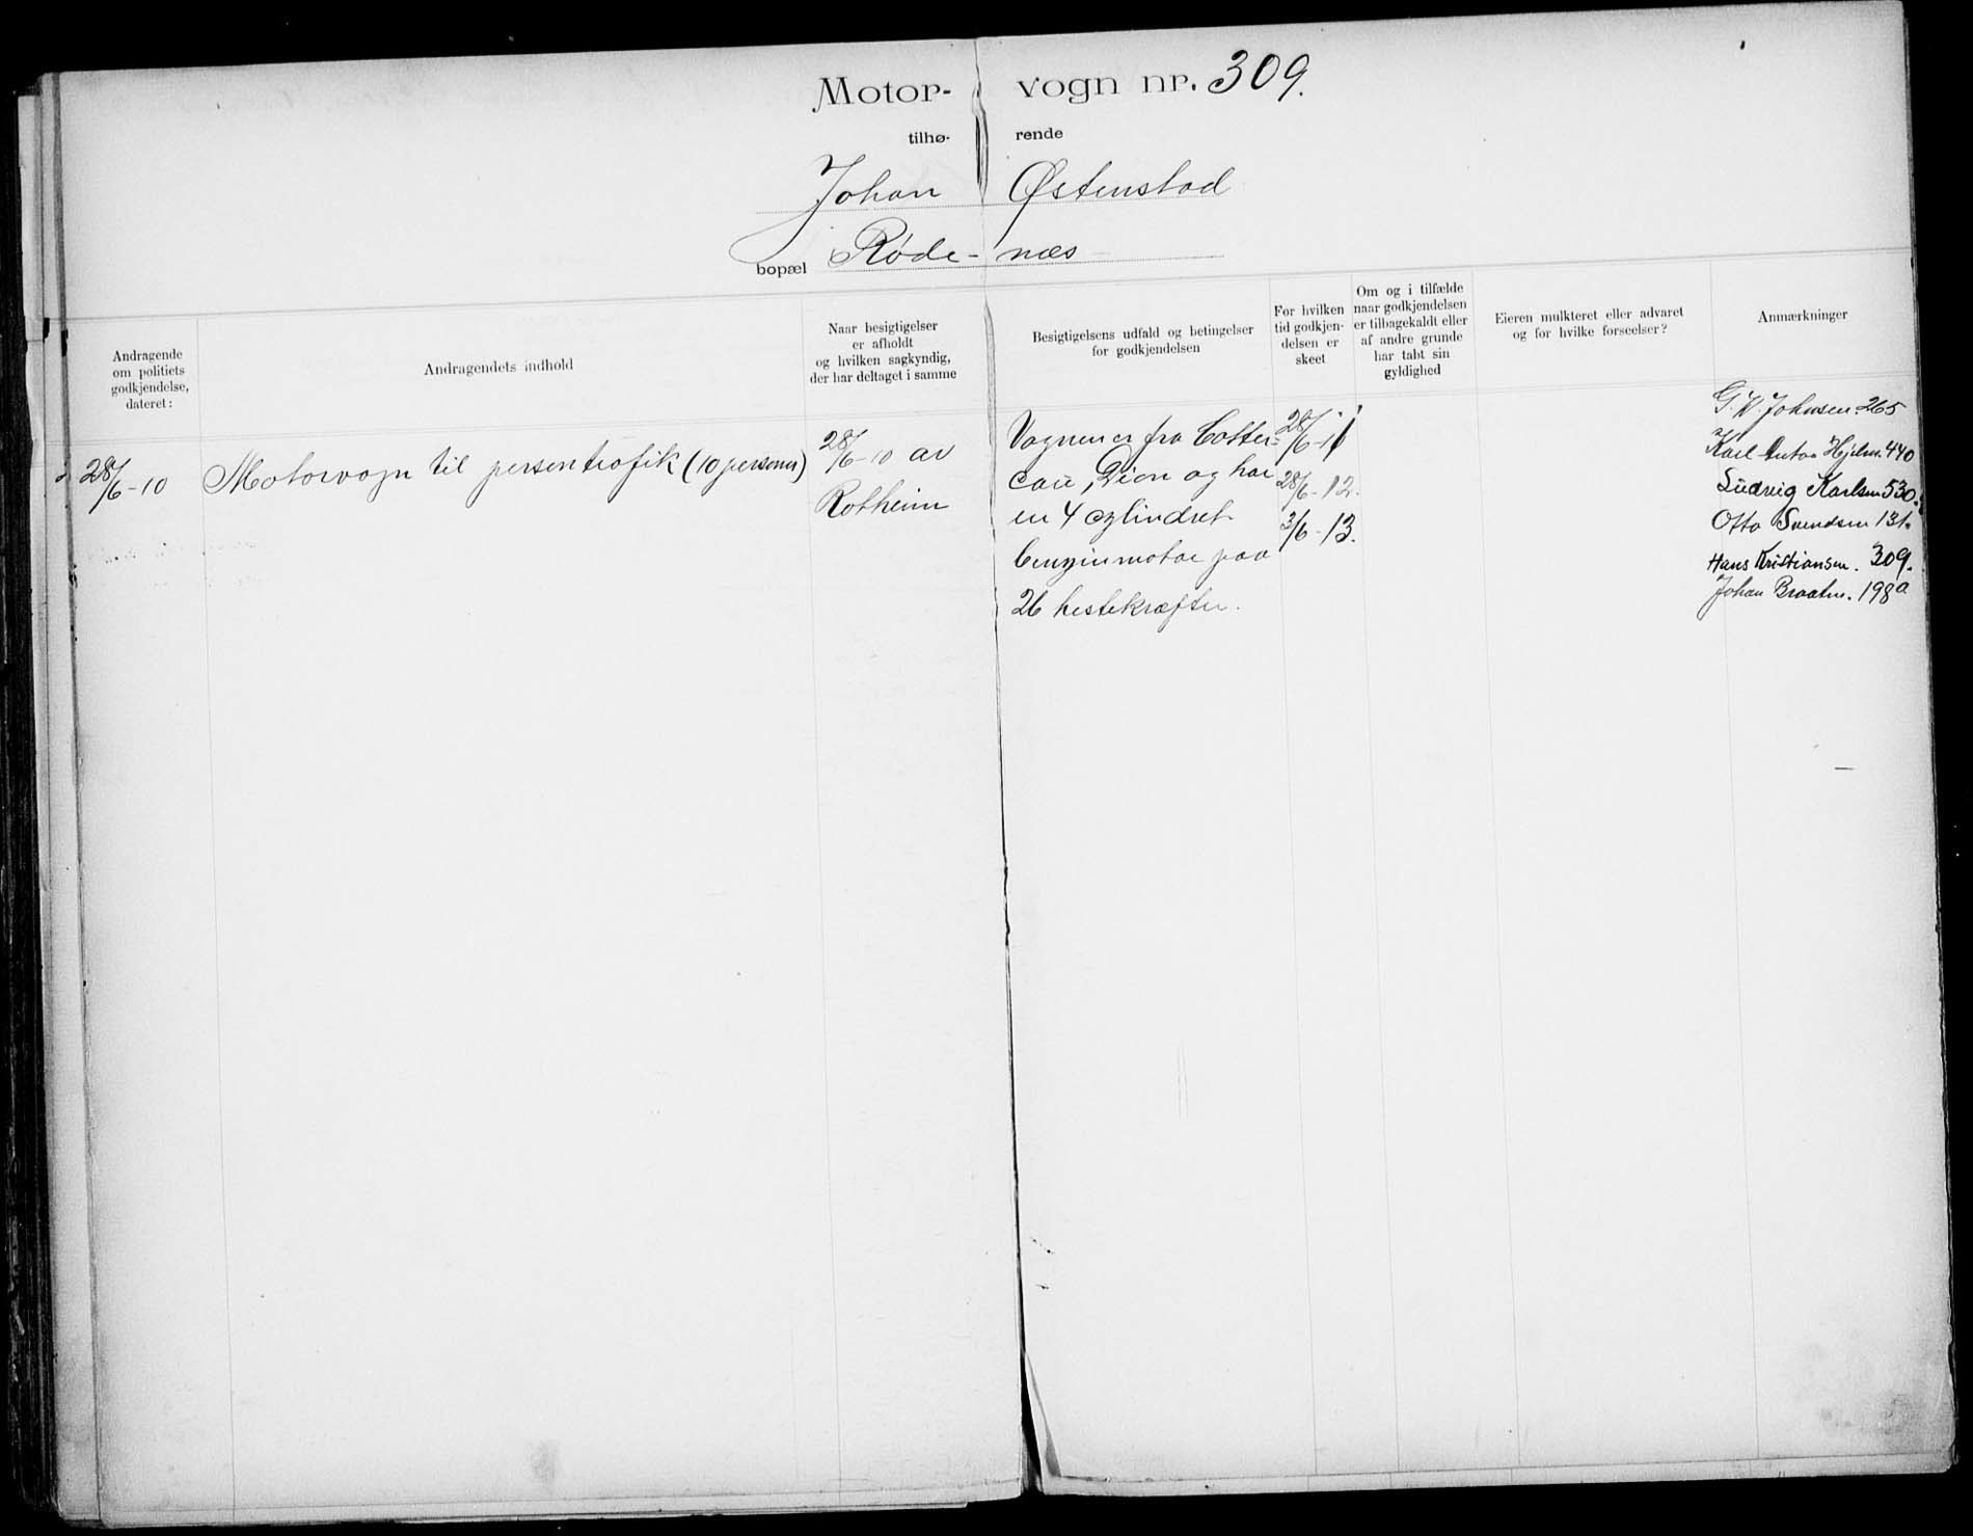 Motor- vogn nr. 309.
tilhø- rende
Johan Østenstad
bopæl Røde- næs
Andragende
om politiets
godkjendelse,
dateret:
Andragendets indhold
Naar besigtigelser
er afholdt
og hvilken sagkyndig,
der har deltaget i samme
Besigtigelsens udfald og betingelser
for godkjendelsen
For hvilken
tid godkjen-
delsen er
skeet
Om og i tilfælde
naar godkjendelsen
er tilbagekaldt eller
af andre grunde
har tabt sin
gyldighed
Eieren mulkteret eller advaret
og for hvilke forseelser?
Anmærkninger
28/6-10
Motorvogn til persontrafik (10 personer)
28/6-10 av
Rotheim
Vognen er fra Cotter=
eau, Dion og har
en 4 cylindret
benzinmotor paa
26 hestekræfter.
28/6-11
28/6-12.
3/6-13.
G. W. Johnsen. 265
Karl Anton Hjelm. 440
Ludvig Karlsen 530.
Otto Svendsen 131.
Hans Kristiansen. 309.
Johan Braaten. 198a